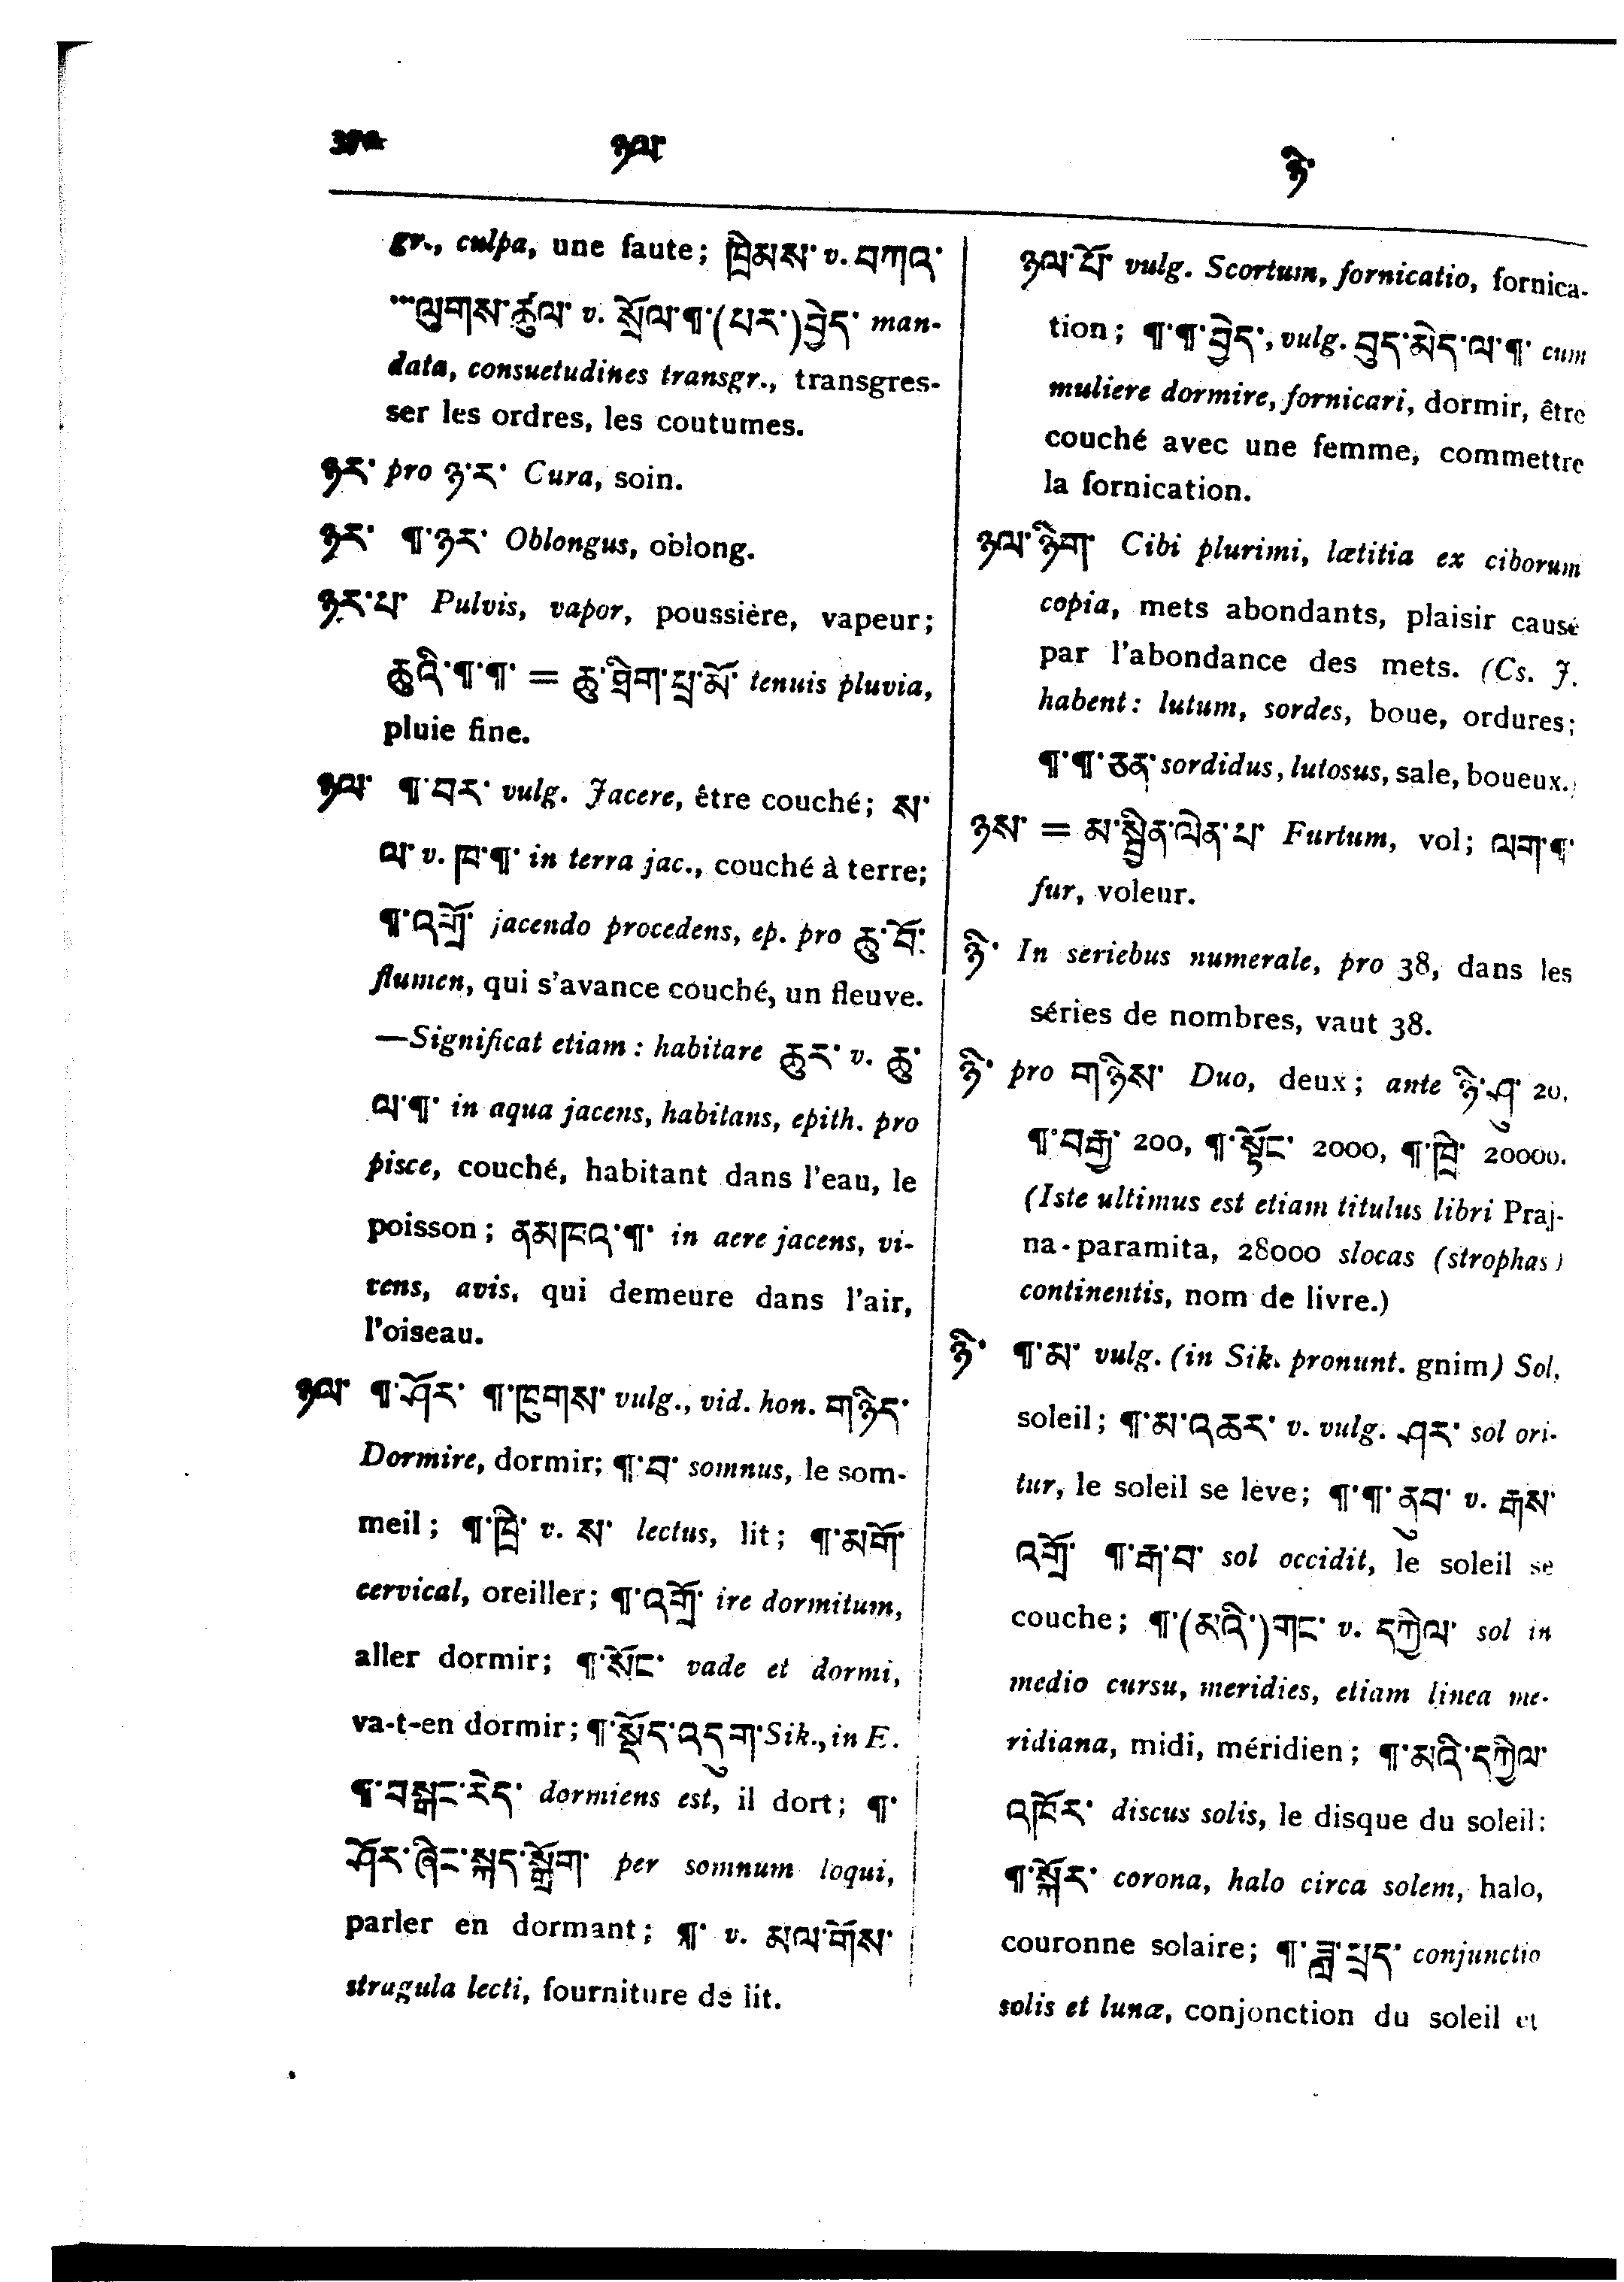 ཉལ་
ཉི་
gr., culpa, une faute; ཁྲིམས་ v. བཀའ་
...ལུགས་ཚུལ་ v. སྲོལ་¶་(པར་)བྱེད་ man-
data, consuetudines transgr., transgres-
ser les ordres, les coutumes.
ཉར་ pro ཉ་ར་ Cura, soin.
ཉར་ ¶་ཉར་ Oblongus, oblong.
ཉར་པ་ Pulvis, vapor, poussière, vapeur;
ཆུའི་¶་¶་ = ཆུ་ཐིག་ཕྲ་མོ་ tenuis pluvia,
pluie fine.
ཉལ་ ¶་བར་ vulg. Jacere, être couché; ས་
ལ་ v. ཁ་¶་ in terra jac., couché à terre;
¶་འགྲོ་ jacendo procedens, ep. pro ཆུ་བོ་
flumen, qui s'avance couché, un fleuve.
—Significat etiam : habitare ཆུར་ v. ཆུ་
ལ་¶་ in aqua jacens, habitans, epith. pro
pisce, couché, habitant dans l'eau, le
poisson; ནམཁའ་¶་ in aere jacens, vi-
vens, avis, qui demeure dans l'air,
l'oiseau.
ཉལ་ ¶་ཤོར་ ¶་ཁུགས་ vulg., vid. hon. གཉིད་
Dormire, dormir; ¶་བ་ somnus, le som-
meil; ¶་ཁྲི་ v. ས་ lectus, lit; ¶་མགོ་
cervical, oreiller; ¶་འགྲོ་ ire dormitum,
aller dormir; ¶་སོང་ vade et dormi,
va-t-en dormir; ¶་སྡོད་འདུག་ Sik., in E.
¶་བསྡང་རེད་ dormiens est, il dort; ¶་
ཤོར་ཞིང་སྐད་སྒྲོག་ per somnum loqui,
parler en dormant; ¶་ v. མལ་གོས་
stragula lecti, fourniture de lit.
ཉལ་པོ་ vulg. Scortum, fornicatio, fornica-
tion; ¶་¶་བྱེད་, vulg. བུད་མེད་ལ་¶་ cum
muliere dormire, fornicari, dormir, être
couché avec une femme, commettre
la fornication.
ཉལ་ཉིག་ Cibi plurimi, lætitia ex ciborum
copia, mets abondants, plaisir causé
par l'abondance des mets. (Cs. J.
habent : lutum, sordes, boue, ordures;
¶་¶་ཅན་ sordidus, lutosus, sale, boueux.)
ཉས་ = མ་སྦྱིན་ལེན་པ་ Furtum, vol; ལག་¶་
fur, voleur.
ཉི་ In seriebus numerale, pro 38, dans les
séries de nombres, vaut 38.
ཉི་ pro གཉིས་ Duo, deux; ante ཉི་ཤུ་ 20,
¶་བརྒྱ་ 200, ¶་སྟོང་ 2000, ¶་ཁྲི་ 20000.
(Iste ultimus est etiam titulus libri Praj-
na-paramita, 28000 slocas (strophas)
continentis, nom de livre.)
ཉི་ ¶་མ་ vulg. (in Sik. pronunt. gnim) Sol,
soleil; ¶་མ་འཆར་ v. vulg. ཤར་ sol ori-
tur, le soleil se lève; ¶་¶་ནུབ་ v. རྒས་
འགྲོ་ ¶་རྒ་བ་ sol occidit, le soleil se
couche; ¶་(མའི་)གང་ v. དཀྱིལ་ sol in
medio cursu, meridies, etiam linea me-
ridiana, midi, méridien; ¶་མའི་དཀྱིལ་
འཁོར་ discus solis, le disque du soleil:
¶་སྐོར་ corona, halo circa solem, halo,
couronne solaire; ¶་ཟླ་ཕྲད་ conjunctio
solis et lunæ, conjonction du soleil et